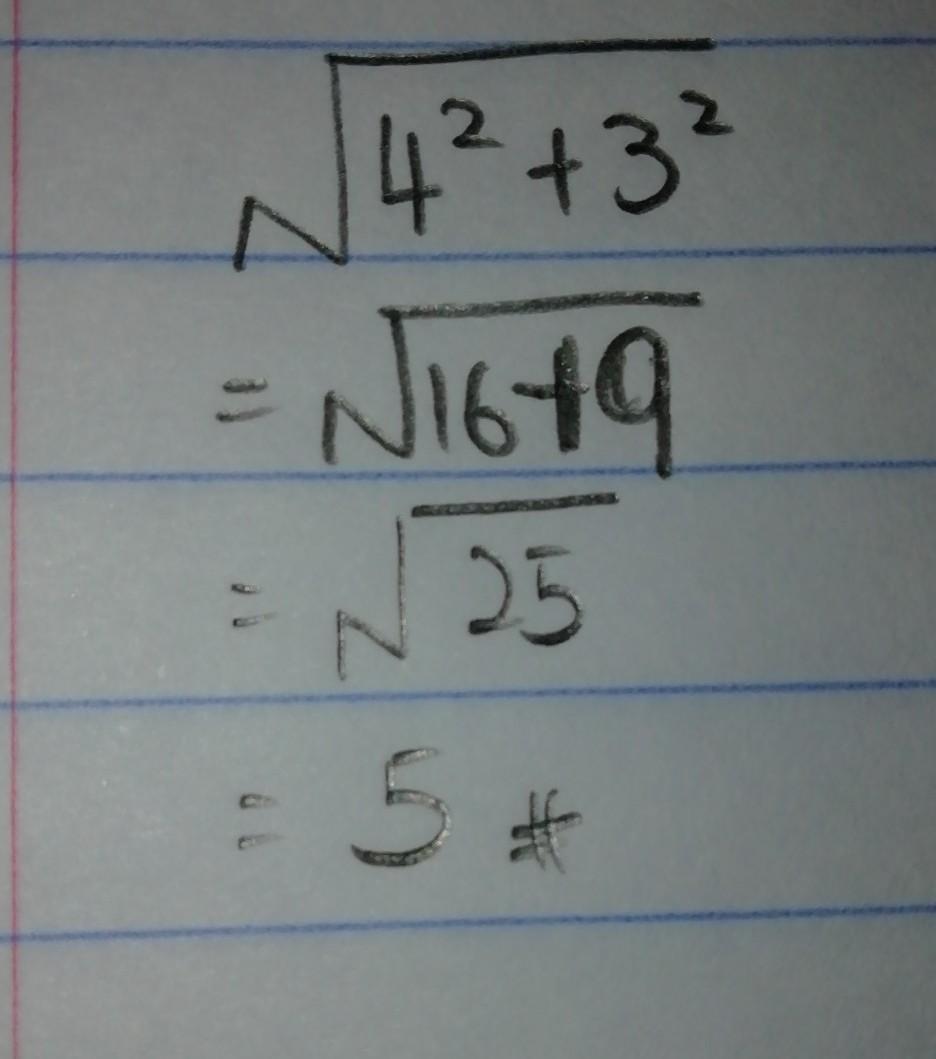 √4² + 3²
= √16+9
= √25
= 5 #